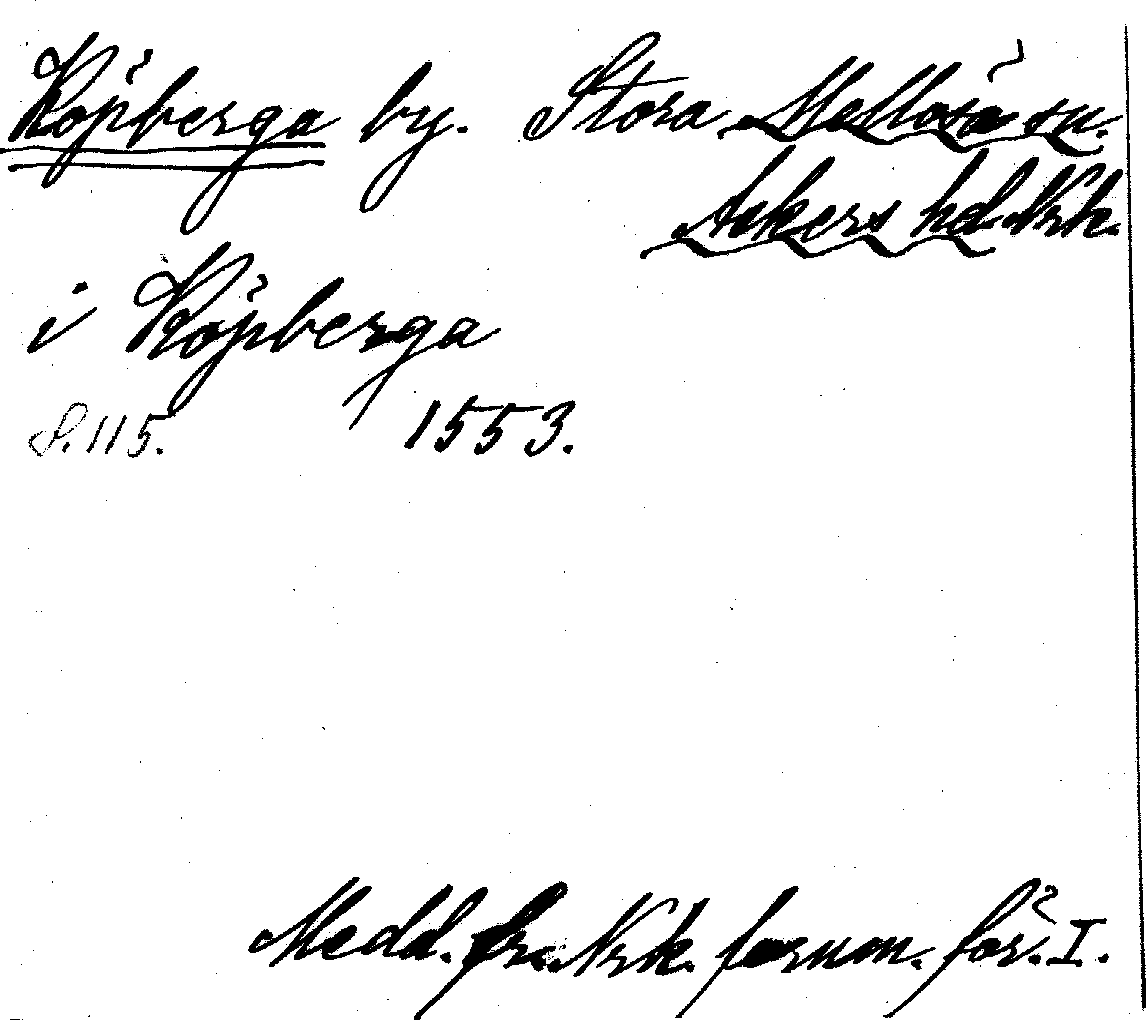 Köpberga by. Stora Mellösa sn.
Askers hd. Nrk.
i Köpberga
S. 115. 1553.
Medd. fr. Nrk. fornm. för. I.